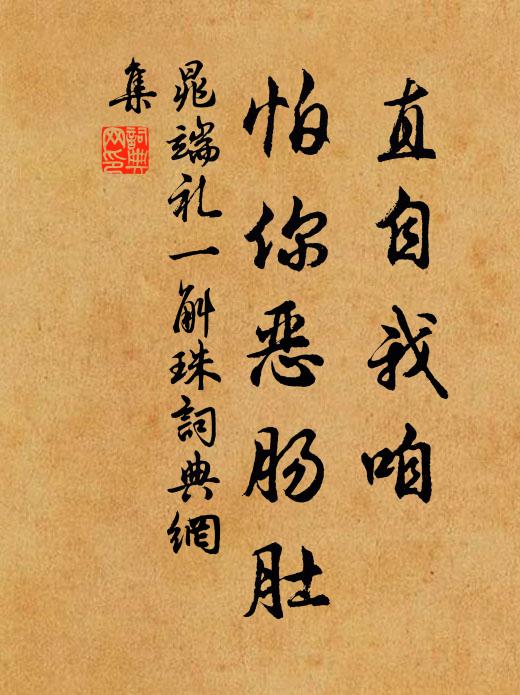 直自我咱
怕你恶肠肚
晁端礼一斛珠詞典網
集
詞典网印